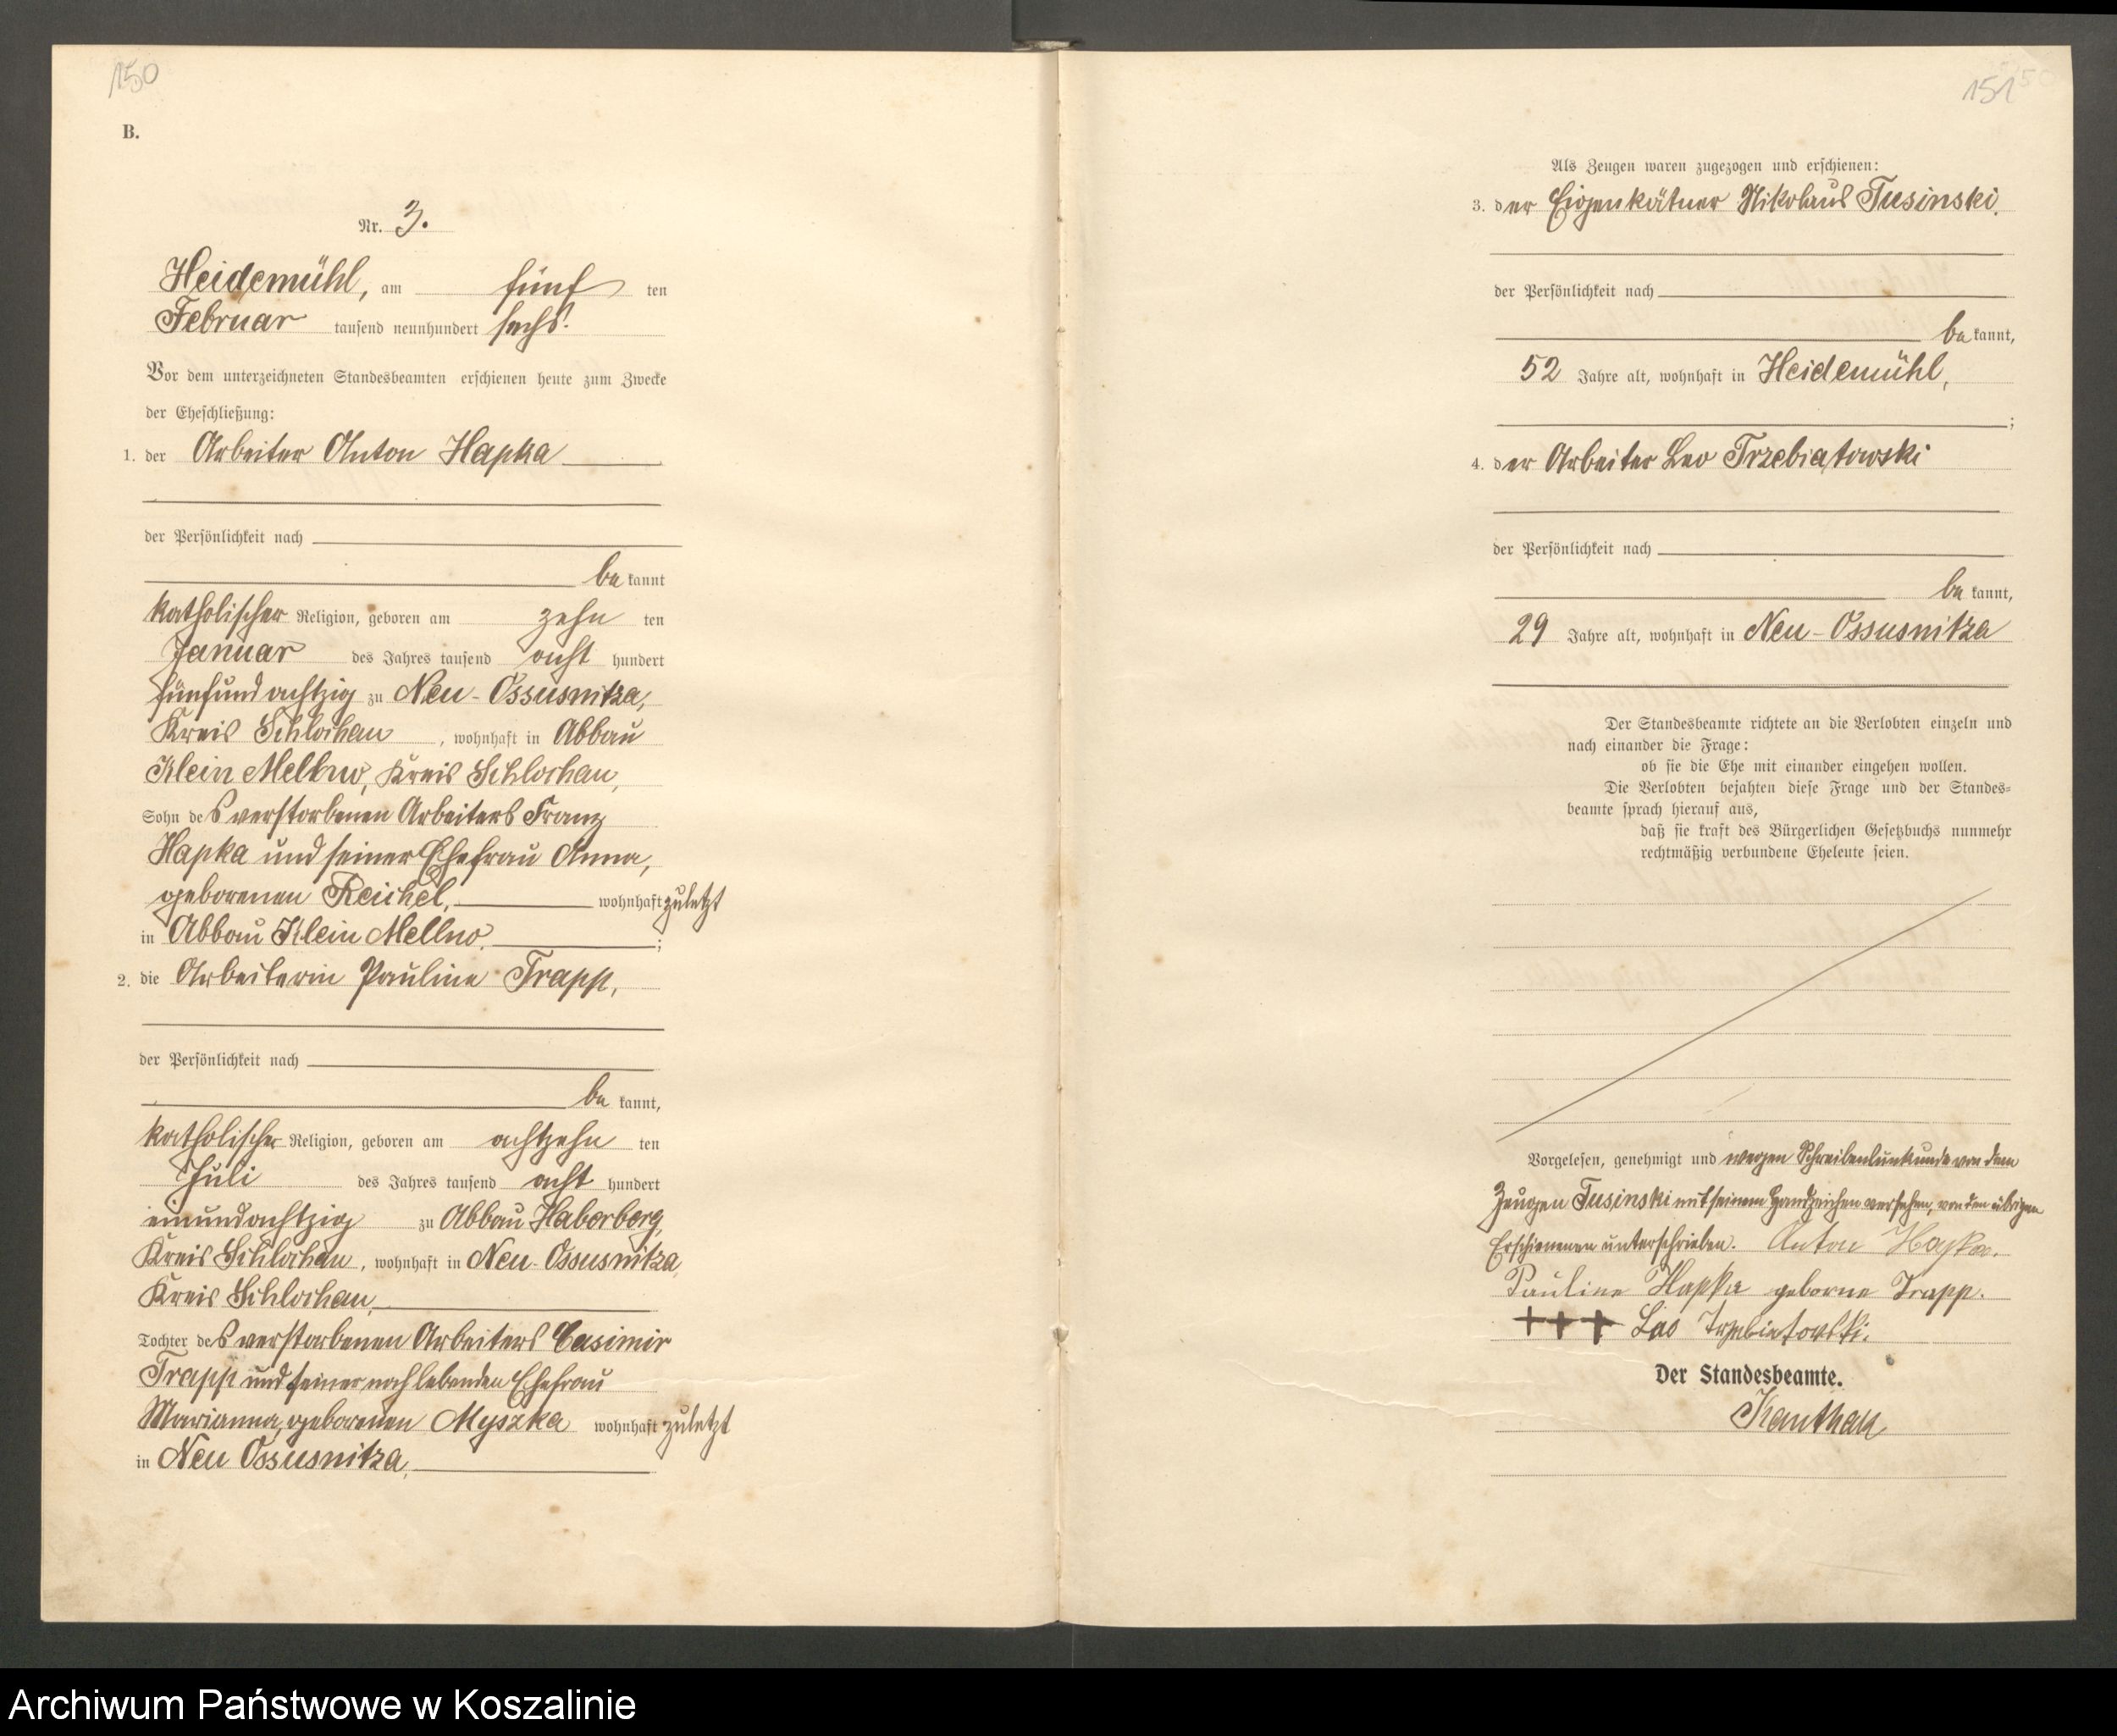 150
B.
Nr. 3.
Heidemühl, am fünf ten
Februar tausend neunhundert sechs.
Vor dem unterzeichneten Standesbeamten erschienen heute zum Zwecke
der Eheschließung:
1. der Arbeiter Anton Hapka
der Persönlichkeit nach
be kannt
katholischer Religion, geboren am zehn ten
Januar des Jahres tausend acht hundert
fünfundachtzig zu Neu-Ossusnitza,
Kreis Schlochau, wohnhaft in Abbau
Klein Mellno, Kreis Schlochau,
Sohn des verstorbenen Arbeiters Franz
Hapka und seiner Ehefrau Anna,
geborenen Reichel, wohnhaft zuletzt
in Abbau Klein Mellno. ;
2. die Arbeiterin Pauline Trapp,
der Persönlichkeit nach
be kannt,
katholischer Religion, geboren am achtzehn ten
Juli des Jahres tausend acht hundert
einundachtzig zu Abbau Haberberg,
Kreis Schlochau, wohnhaft in Neu-Ossusnitza,
Kreis Schlochau,
Tochter des verstorbenen Arbeiters Casimir
Trapp und seiner noch lebenden Ehefrau
Marianna, geborenen Myszka wohnhaft zuletzt
in Neu Ossusnitza,
151
Als Zeugen waren zugezogen und erschienen:
3. der Eigenkätner Nikolaus Tusinski,
der Persönlichkeit nach
be kannt,
52 Jahre alt, wohnhaft in Heidemühl,
;
4. der Arbeiter Leo Trzebiatowski
der Persönlichkeit nach
be kannt,
29 Jahre alt, wohnhaft in Neu-Ossusnitza
Der Standesbeamte richtete an die Verlobten einzeln und
nach einander die Frage:
ob sie die Ehe mit einander eingehen wollen.
Die Verlobten bejahten diese Frage und der Standes=
beamte sprach hierauf aus,
daß sie kraft des Bürgerlichen Gesetzbuchs nunmehr
rechtmäßig verbundene Eheleute seien.
Vorgelesen, genehmigt und wegen Schreibenunkunde von dem
Zeugen Tusinski mit seinem Handzeichen versehen, von den übrigen
Erschienenen unterschrieben. Anton Hapka.
Pauline Hapka geborne Trapp.
+++ Leo Trzebiatovski.
Der Standesbeamte.
Kanthak
Archiwum Państwowe w Koszalinie